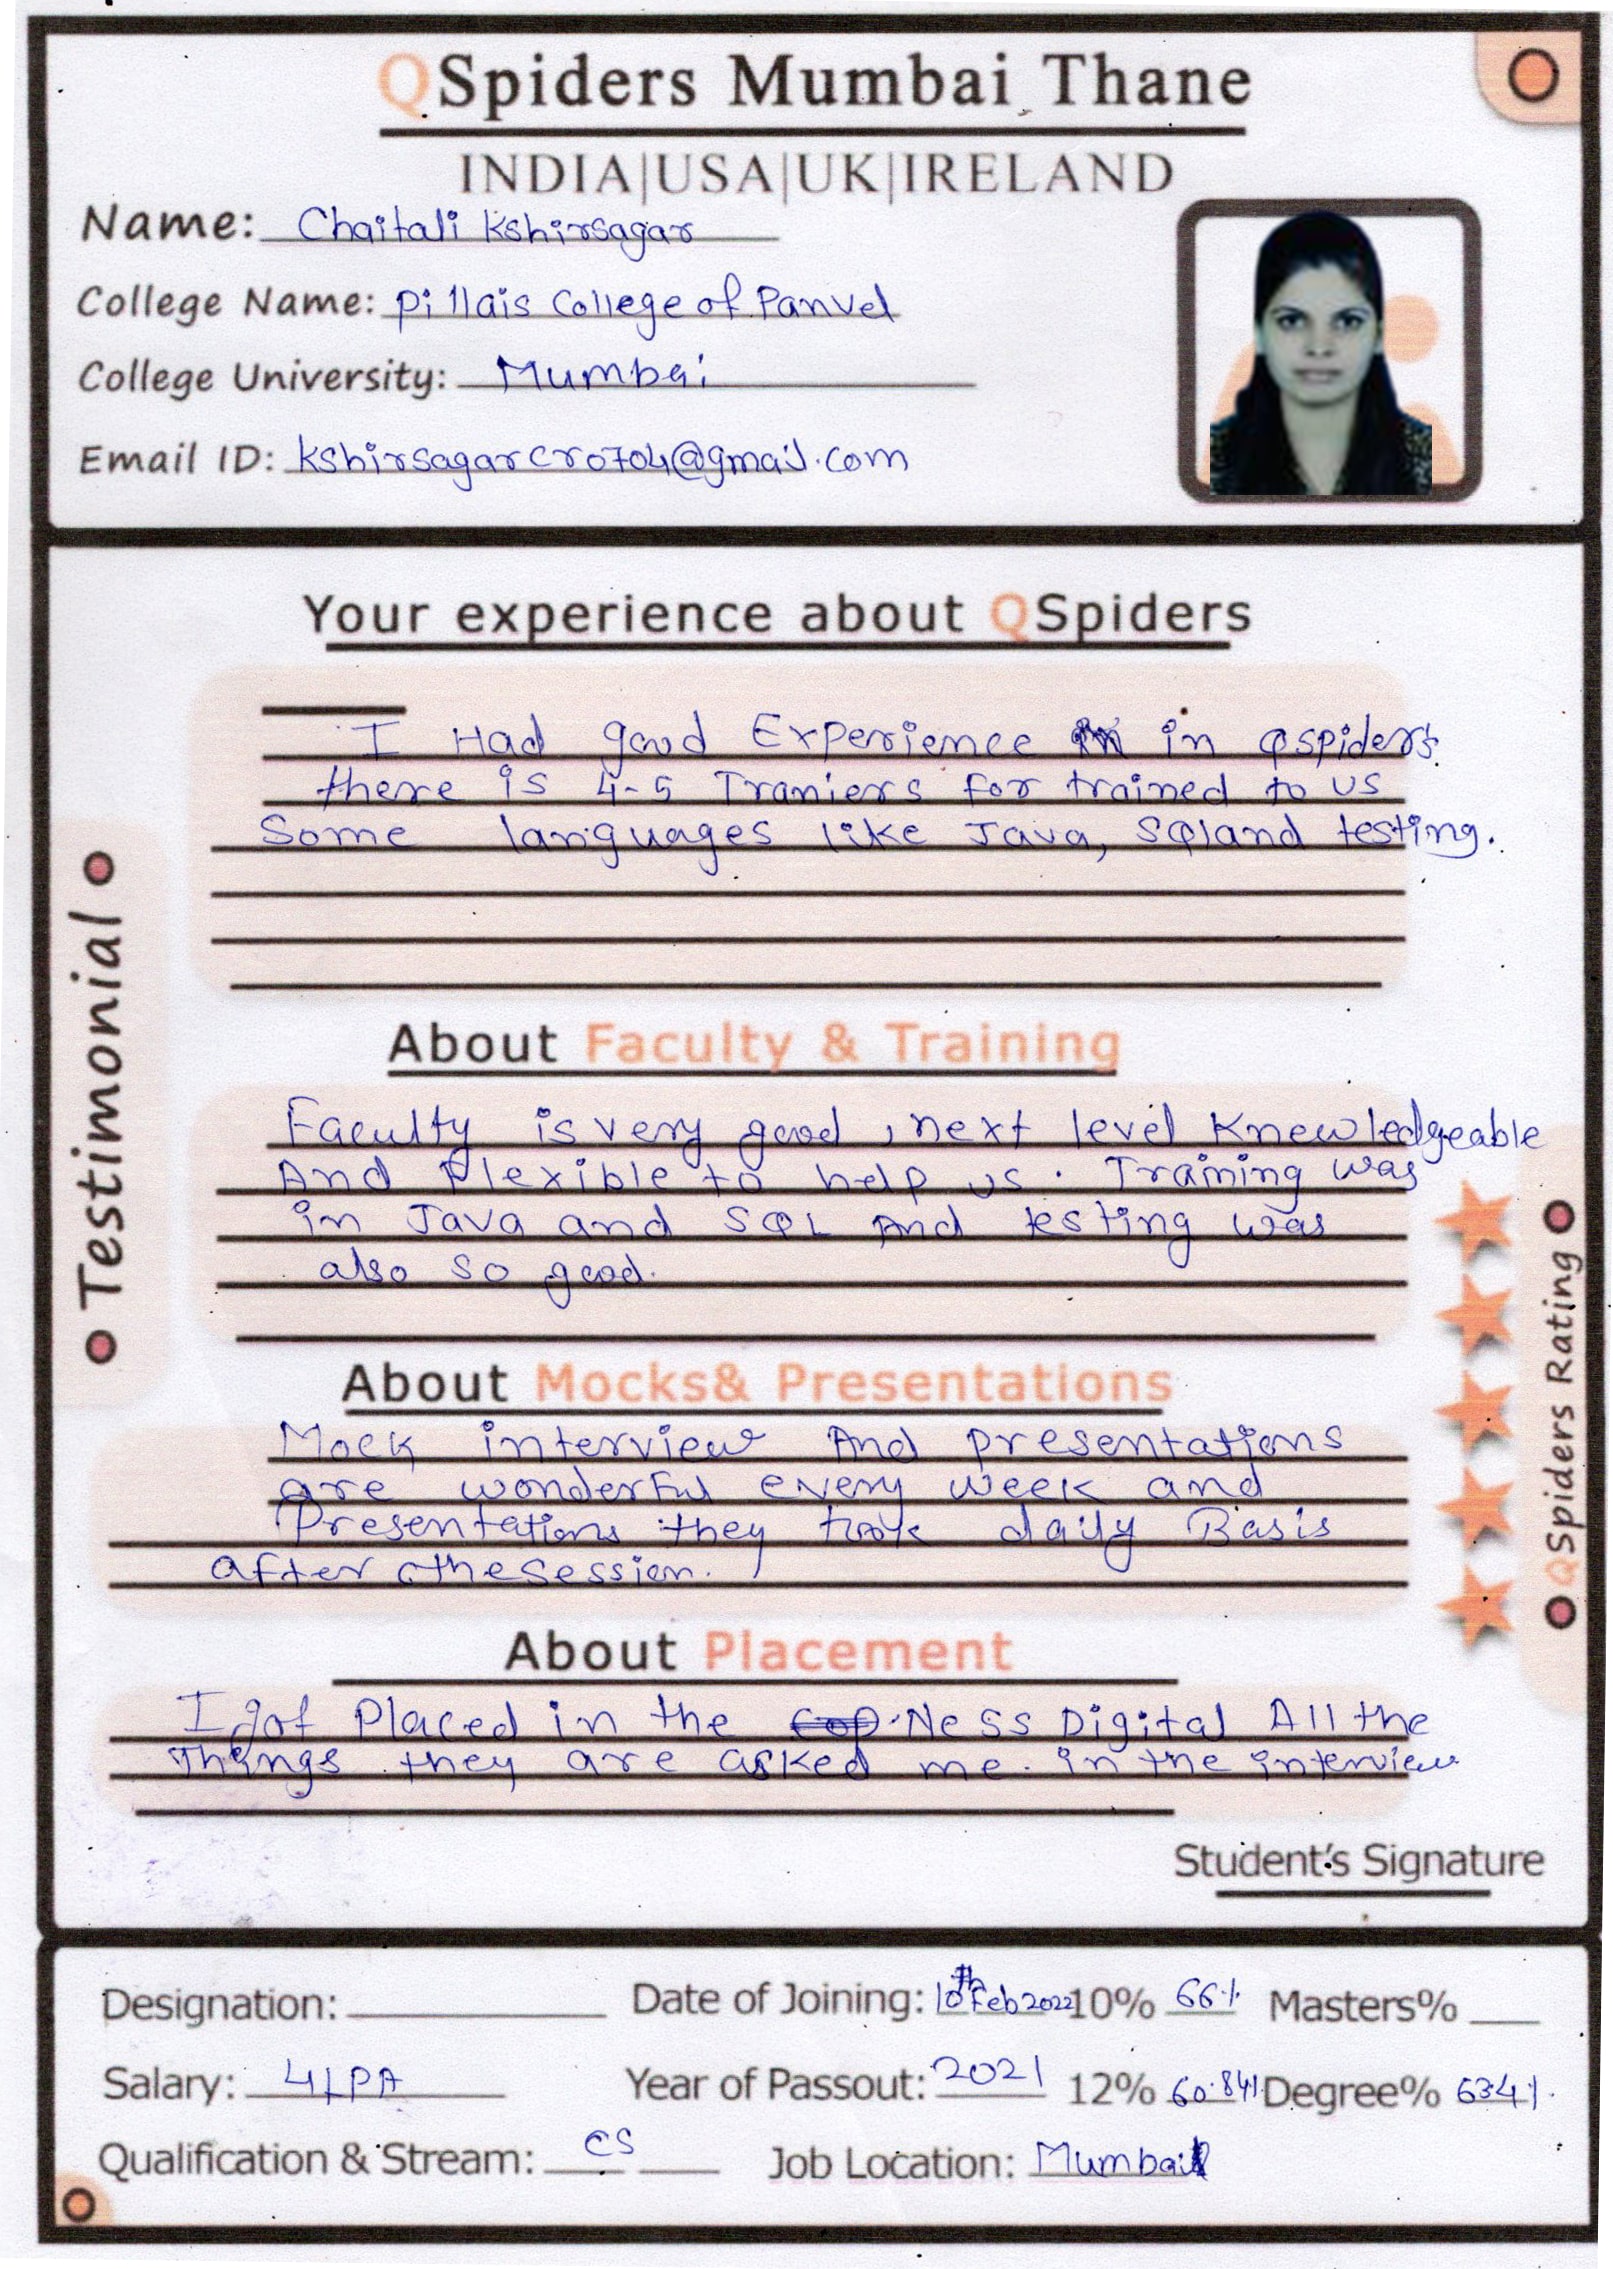 QSpiders Mumbai Thane
INDIA|USA|UK|IRELAND
Name: Chaitali Kshirsagar
College Name: Pillais College of Panvel
College University: Mumbai
Email ID: kshirsagarcr0704@gmail.com
Your experience about QSpiders
I Had good Experience in qspiders.
there is 4-5 Traniers for trained to us
Some languages like Java, SQland testing.
Testimonial
About Faculty & Training
Faculty is very good, next level Knewledgeable
And flexible to help us. Training was
in Java and SQL And testing was
also so good.
About Mocks& Presentations
Mock interview And presentations
are wonderful every week and
Presentations they took daily Basis
after the session.
QSpiders Rating
About Placement
I got Placed in the Ness Digital All the
Things they are asked me. in the interview
Student's Signature
Designation: Date of Joining: 10th Feb 2022 10% 66% Masters%
Salary: 4LPA Year of Passout: 2021 12% 60.84% Degree% 634%.
Qualification & Stream: CS Job Location: Mumbai